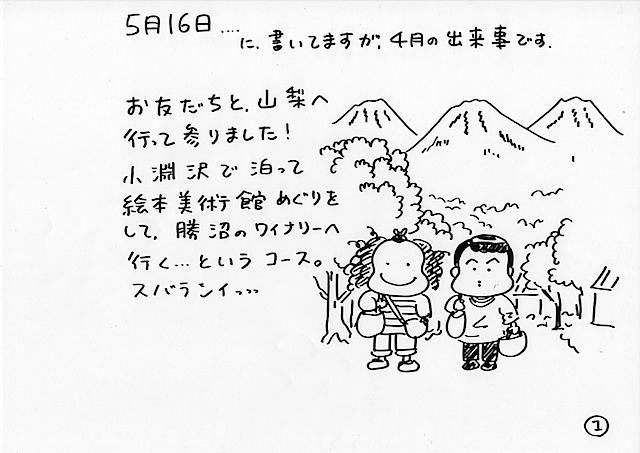 5月16日....
に、書いてますが、4月の出来事です.
お友だちと、山梨へ
行って参りました!
小淵沢で泊って
絵本美術館めぐりを
して、勝沼のワイナリーへ
行く…という コース。
スバラシイっっっ
1